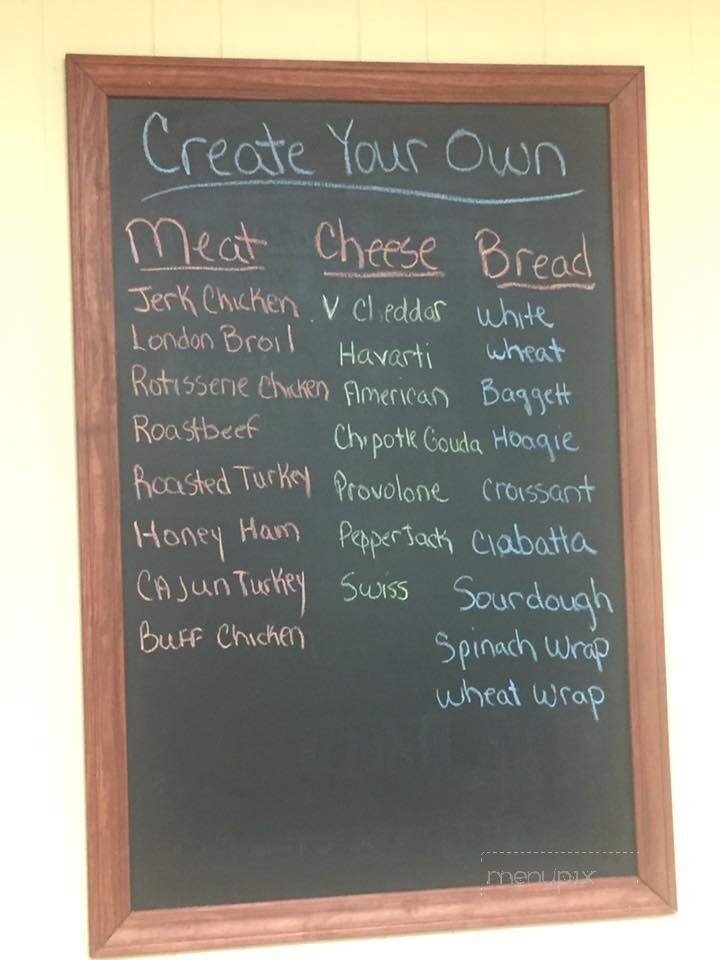 Create Your Own
Meat
Jerk Chicken
London Broil
Rotisserie Chicken
Roastbeef
Roasted Turkey
Honey Ham
CAJun Turkey
Buff Chicken
Cheese
V Cheddar
Havarti
American
Chipotle Gouda
Provolone
Pepper Jack
Swiss
Bread
White
wheat
Baggett
Hoagie
croissant
ciabatta
Sourdough
Spinach Wrap
wheat wrap
menupix